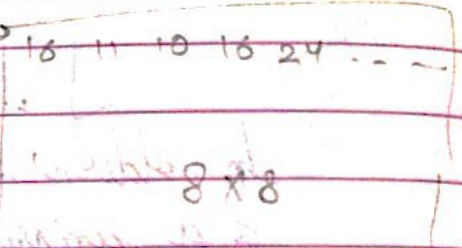 16 11 10 16 24 -- -
8 x 8